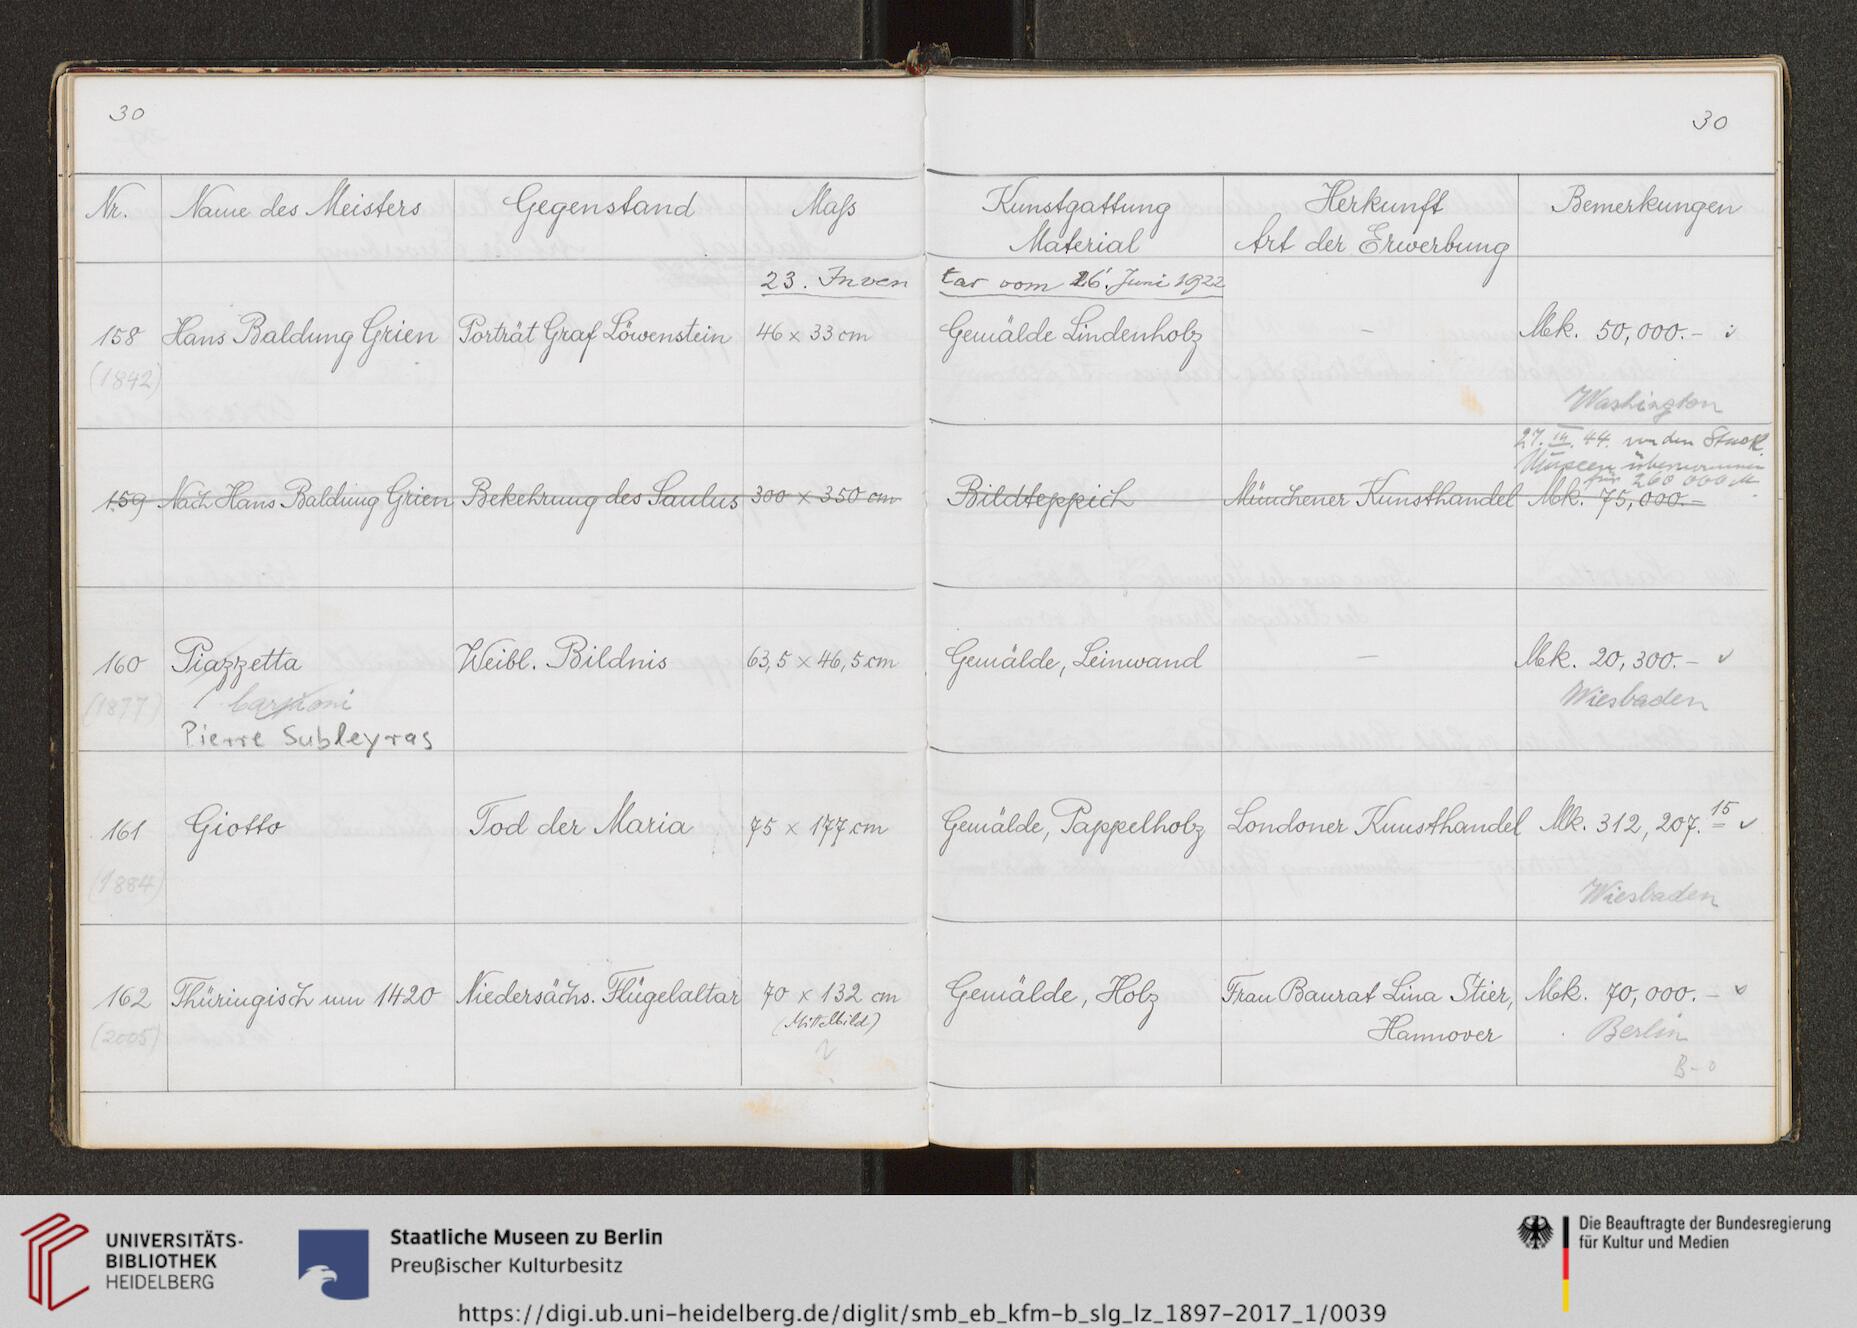 30
30
Nr. Name des Meisters Gegenstand Maſs Kunstgattung Material Herkunft Art der Erwerbung Bemerkungen
23. Inventar vom 26. Juni 1922
158 Hans Baldung Grien Porträt Graf Löwenstein 46 x 33 cm Gemälde Lindenholz – Mk. 50,000.–
(1842)
Washington
27. 44. von den Staatl.
Museen übernommen
für 260 000 M
159 Nach Hans Baldung Grien Bekehrung des Saulus 300 x 350 cm Bildteppich Münchener Kunsthandel Mk. 75,000.=
160 Piazzetta Weibl. Bildnis 63,5 x 46,5 cm Gemälde, Leinwand – Mk. 20,300.–
(1877) Wiesbaden
Pierre Subleyras
161 Giotto Tod der Maria 75 x 177 cm Gemälde, Pappelholz Londoner Kunsthandel Mk. 312,207.15
(1884) Wiesbaden
162 Thüringisch um 1420 Niedersächs. Flügelaltar 70 x 132 cm Gemälde, Holz Frau Baurat Lina Stier, Mk. 70,000.–
(2005) (Mittelbild) Hannover Berlin
UNIVERSITÄTS-
BIBLIOTHEK
HEIDELBERG
Staatliche Museen zu Berlin
Preußischer Kulturbesitz
Die Beauftragte der Bundesregierung
für Kultur und Medien
https://digi.ub.uni-heidelberg.de/diglit/smb_eb_kfm-b_slg_lz_1897-2017_1/0039